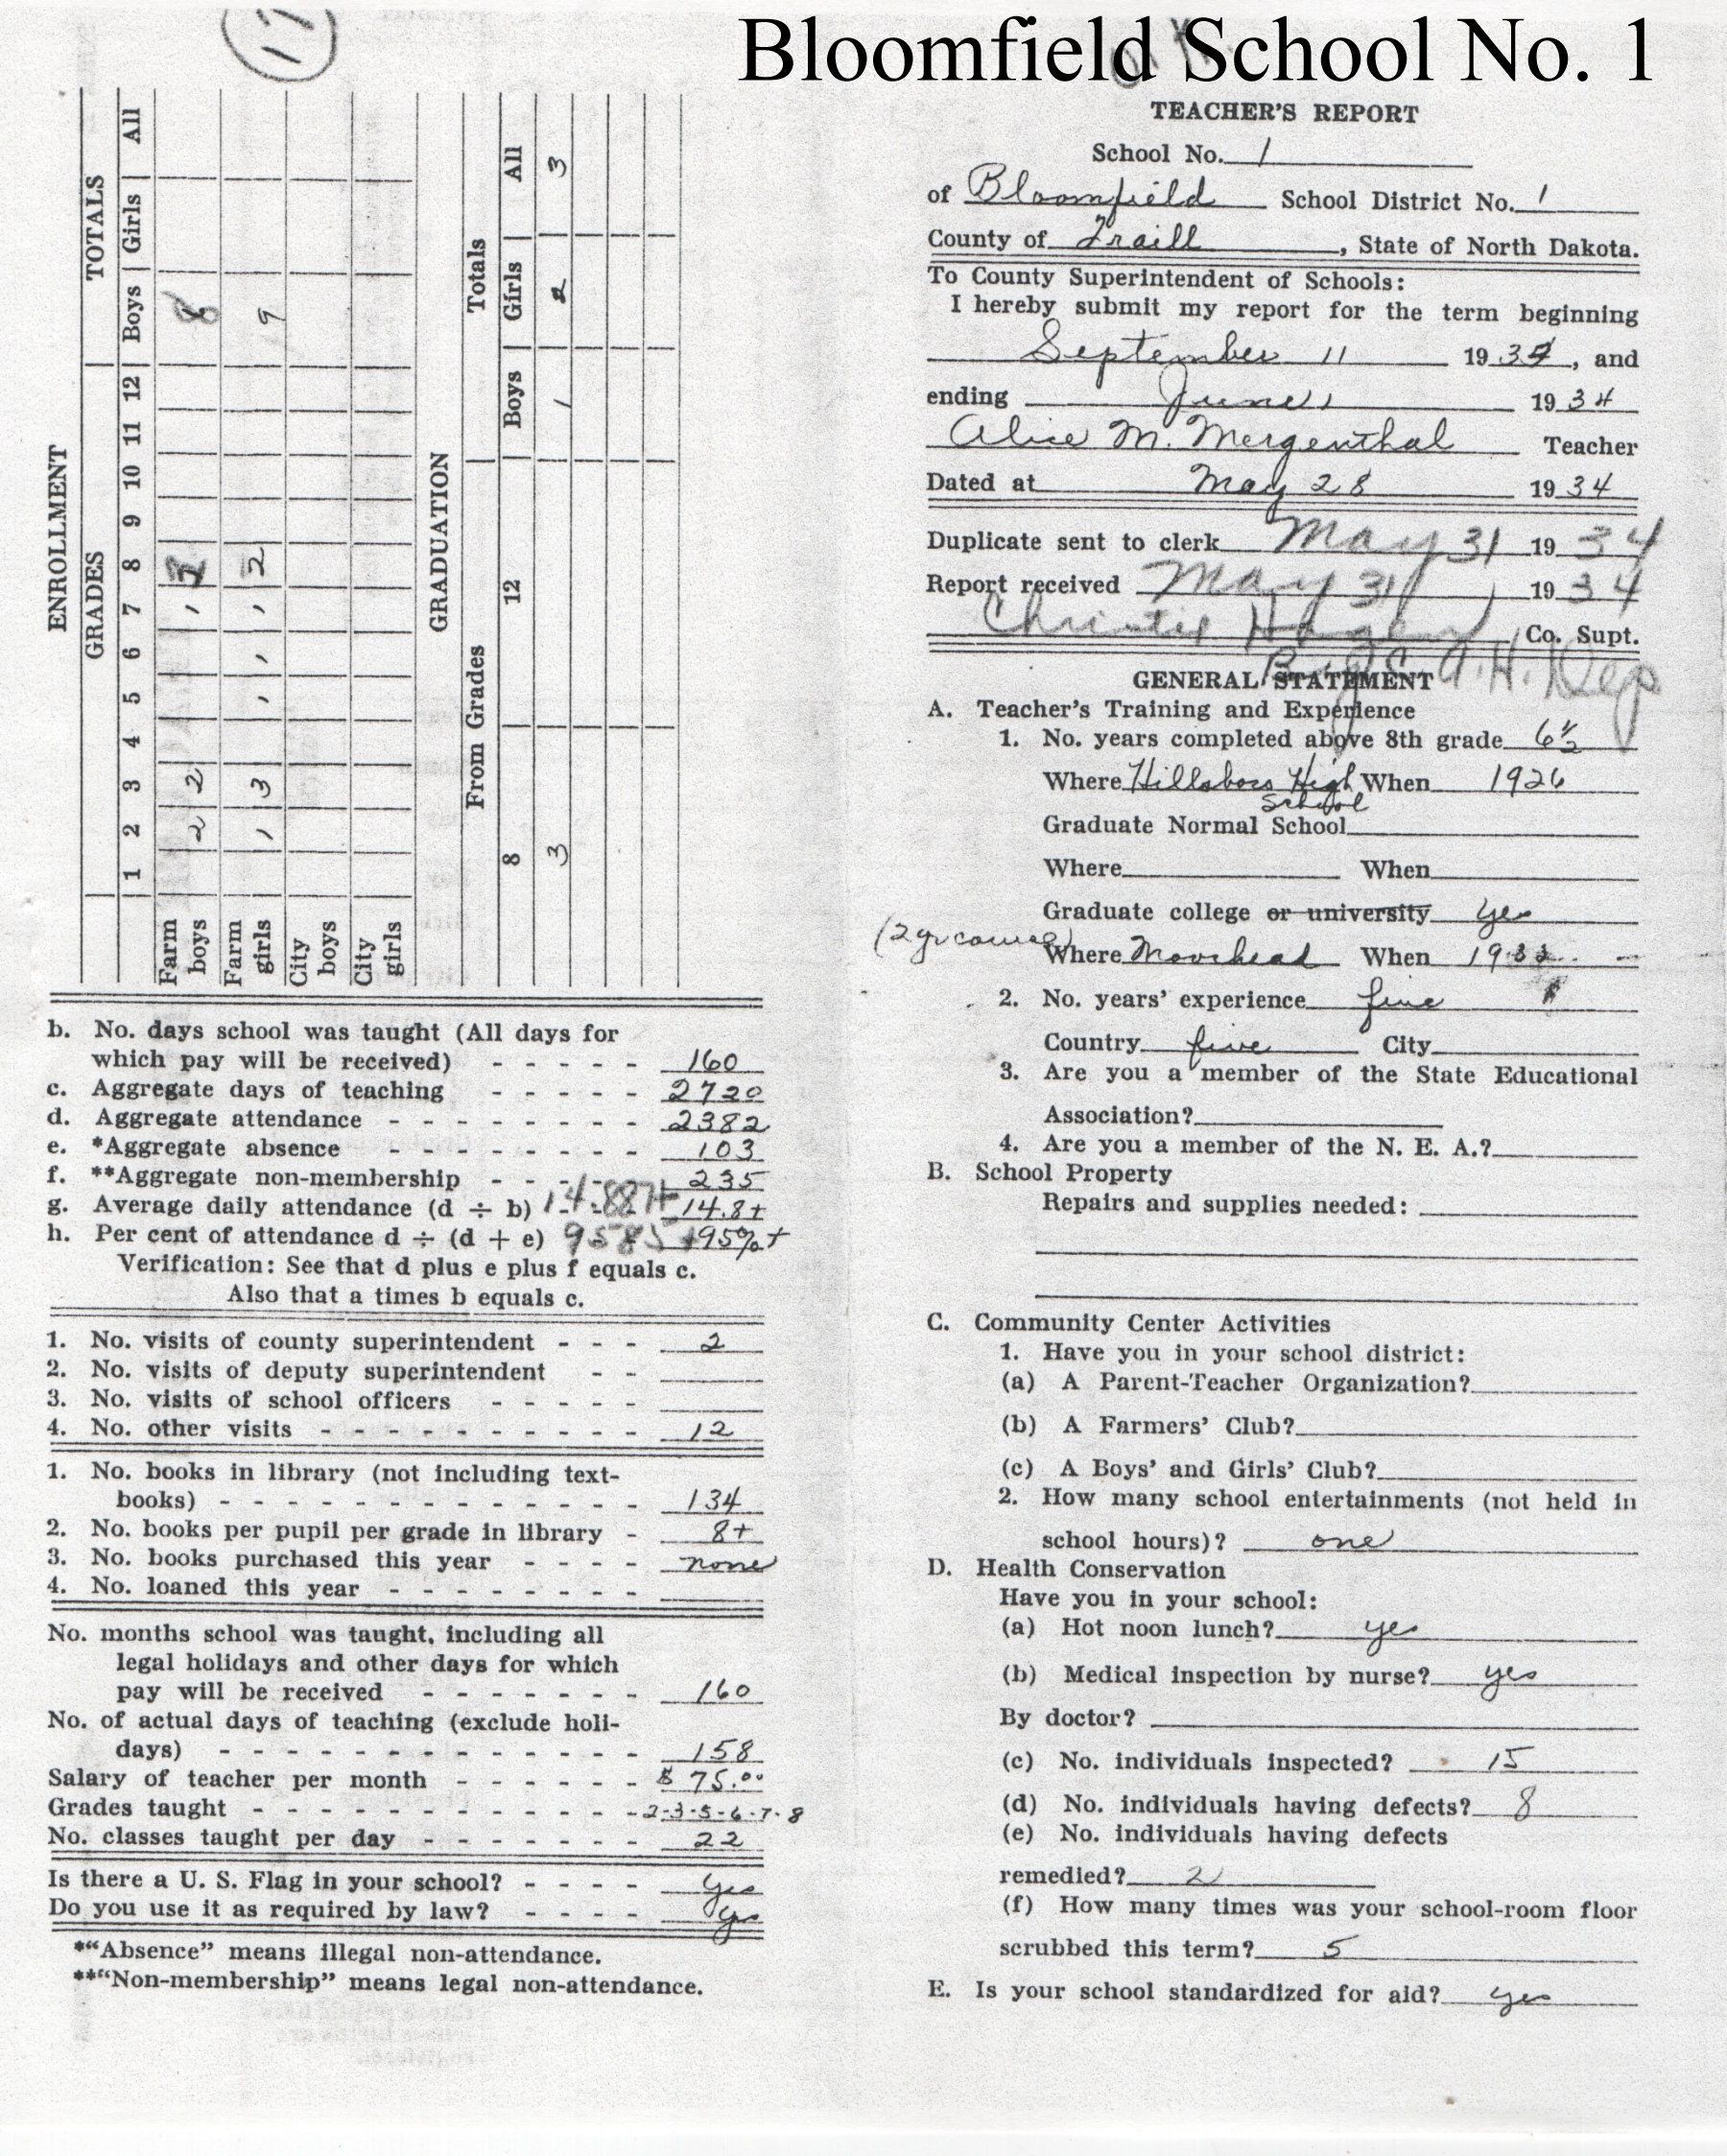 Bloomfield School No. 1
17
ENROLLMENT
GRADES TOTALS
1 2 3 4 5 6 7 8 9 10 11 12 Boys Girls All
Farm boys 2 2 1 8
Farm girls 1 3 1 1 1 2 9
City boys
City girls
GRADUATION
From Grades Totals
8 12 Boys Girls All
3 1 2 3
b. No. days school was taught (All days for
which pay will be received) - - - - - 160
c. Aggregate days of teaching - - - - - 2720
d. Aggregate attendance - - - - - - - - 2382
e. *Aggregate absence - - - - - - - - 103
f. **Aggregate non-membership - - - - - 235
g. Average daily attendance (d ÷ b) 14.887+ 14.8+
h. Per cent of attendance d ÷ (d + e) 9585+ 95%+
Verification: See that d plus e plus f equals c.
Also that a times b equals c.
1. No. visits of county superintendent - - - 2
2. No. visits of deputy superintendent - -
3. No. visits of school officers - - - - -
4. No. other visits - - - - - - - - - - 12
1. No. books in library (not including text-
books) - - - - - - - - - - - - - 134
2. No. books per pupil per grade in library - 8+
3. No. books purchased this year - - - - none
4. No. loaned this year - - - - - - - -
No. months school was taught, including all
legal holidays and other days for which
pay will be received - - - - - - - 160
No. of actual days of teaching (exclude holi-
days) - - - - - - - - - - - - - 158
Salary of teacher per month - - - - - - $ 75.00
Grades taught - - - - - - - - - - - - 2-3-5-6-7-8
No. classes taught per day - - - - - - - 22
Is there a U. S. Flag in your school? - - - - yes
Do you use it as required by law? - - - - yes
*"Absence" means illegal non-attendance.
**"Non-membership" means legal non-attendance.
TEACHER'S REPORT
School No. 1
of Bloomfield School District No. 1
County of Traill, State of North Dakota.
To County Superintendent of Schools:
I hereby submit my report for the term beginning
September 11 19 3, and
ending June 1 19 34
Alice M. Mergenthal Teacher
Dated at May 28 19 34
Duplicate sent to clerk May 31 19 34
Report received May 31 19 34
Christie Hagen Co. Supt.
By A.H. Dep
GENERAL STATEMENT
A. Teacher's Training and Experience
1. No. years completed above 8th grade 6½
Where Hillsboro High School When 1926
Graduate Normal School
Where When
Graduate college or university yes
(2 yr course) Where Moorhead When 1933
2. No. years' experience five
Country five City
3. Are you a member of the State Educational
Association?
4. Are you a member of the N. E. A.?
B. School Property
Repairs and supplies needed:
C. Community Center Activities
1. Have you in your school district:
(a) A Parent-Teacher Organization?
(b) A Farmers' Club?
(c) A Boys' and Girls' Club?
2. How many school entertainments (not held in
school hours)? one
D. Health Conservation
Have you in your school:
(a) Hot noon lunch? yes
(b) Medical inspection by nurse? yes
By doctor?
(c) No. individuals inspected? 15
(d) No. individuals having defects? 8
(e) No. individuals having defects
remedied? 2
(f) How many times was your school-room floor
scrubbed this term? 5
E. Is your school standardized for aid? yes